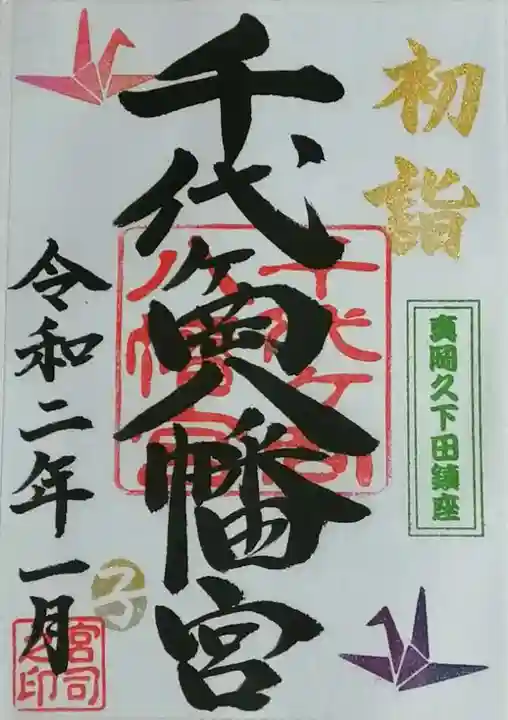 初詣
真岡久下田鎮座
千代ヶ岡八幡宮
千代ヶ岡
八幡宮
令和二年一月
子
宮司
之印